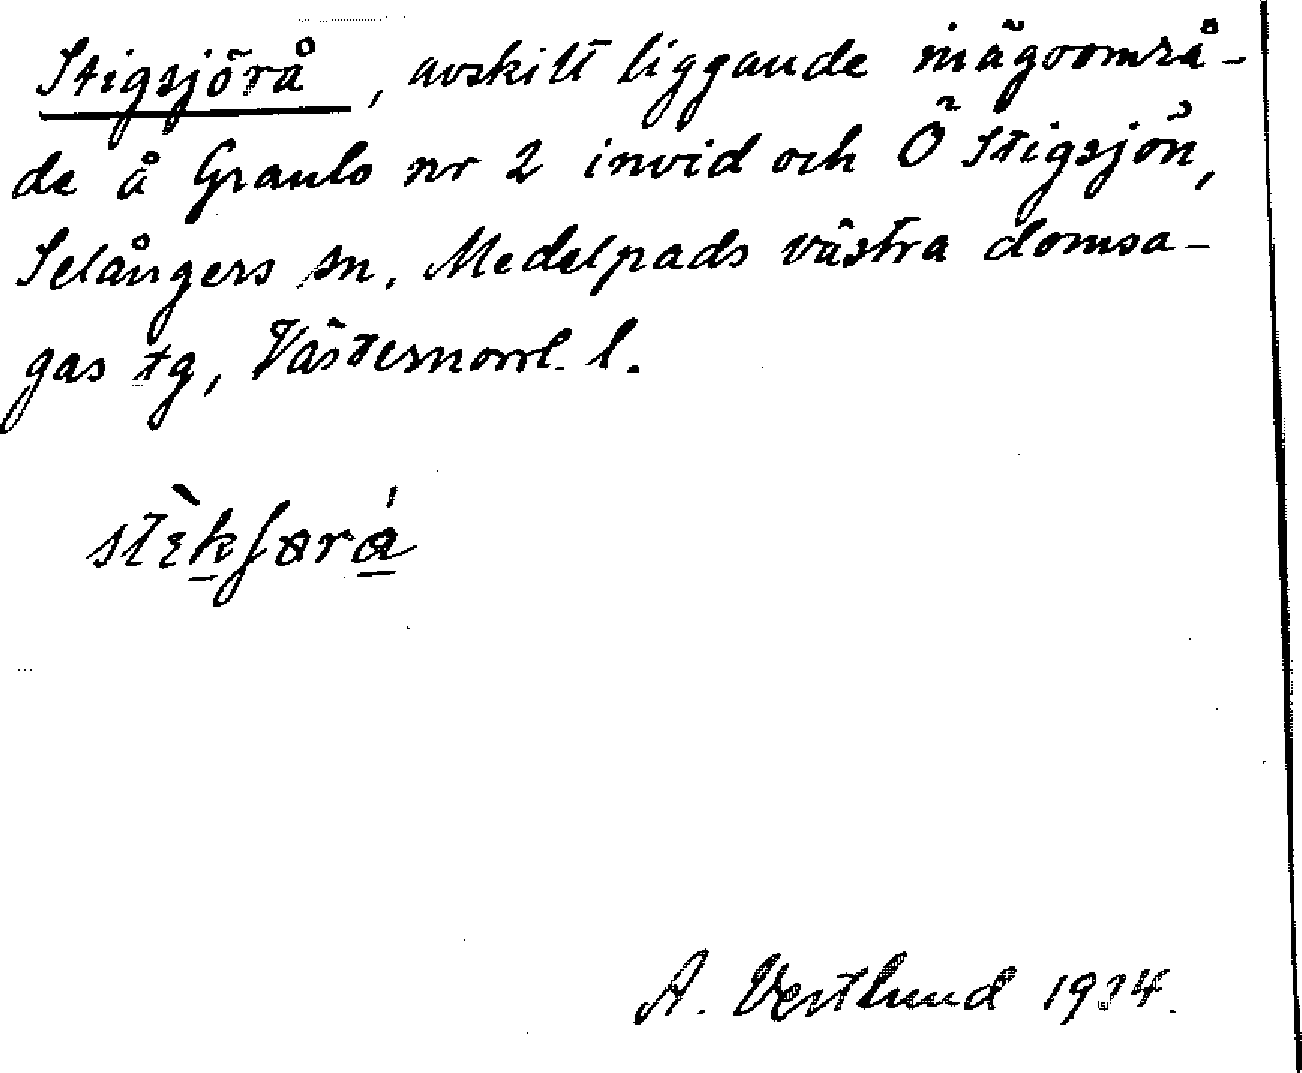 Stigsjörå, avskilt liggande inägoområ-
de å Granlo nr 2 invid och Ö Stigsjön,
Selångers sn, Medelpads västra domsa-
gas tg, Västernorrl. l.
A. Vestlund 1924.